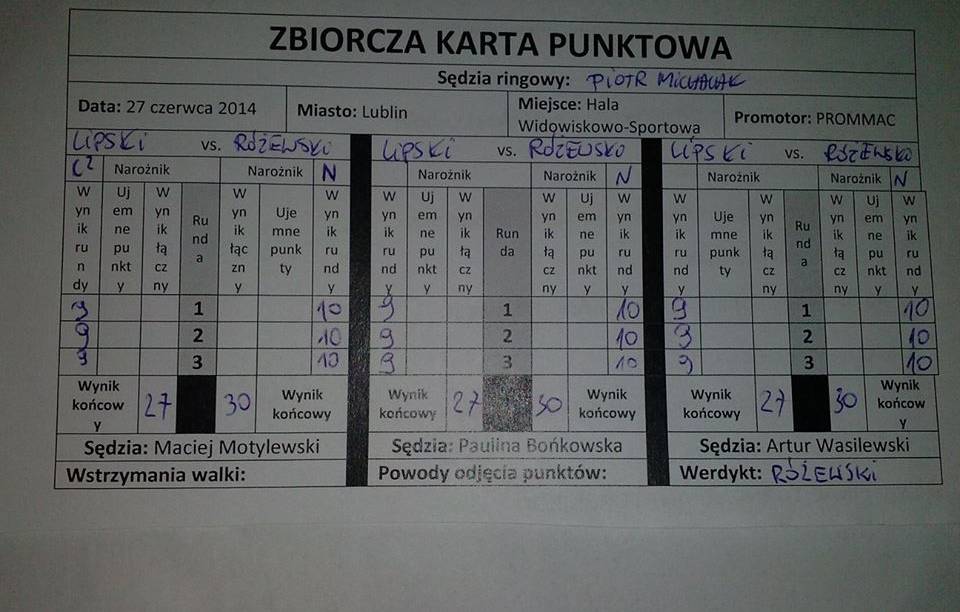 ZBIORCZA KARTA PUNKTOWA
Sędzia ringowy: PIOTR MICHALAK
Data: 27 czerwca 2014 Miasto: Lublin Miejsce: Hala Widowiskowo-Sportowa Promotor: PROMMAC
LIPSKI vs. RÓŻEWSKO LIPSKI vs. RÓŻEWSKO LIPSKI vs. RÓŻEWSKO
Narożnik Narożnik N Narożnik Narożnik N Narożnik Narożnik N
Wynik rundy Ujemne punkty Wynik łączny Runda Wynik łączny Ujemne punkty Wynik rundy Wynik rundy Ujemne punkty Wynik łączny Runda Wynik łączny Ujemne punkty Wynik rundy Wynik rundy Ujemne punkty Wynik łączny Runda Wynik łączny Ujemne punkty Wynik rundy
9 1 10 9 1 10 9 1 10
9 2 10 9 2 10 9 2 10
9 3 10 9 3 10 9 3 10
Wynik końcowy 27 30 Wynik końcowy Wynik końcowy 27 30 Wynik końcowy Wynik końcowy 27 30 Wynik końcowy
Sędzia: Maciej Motylewski Sędzia: Paulina Bońkowska Sędzia: Artur Wasilewski
Wstrzymania walki: Powody odjęcia punktów: Werdykt: RÓŻEWSKI